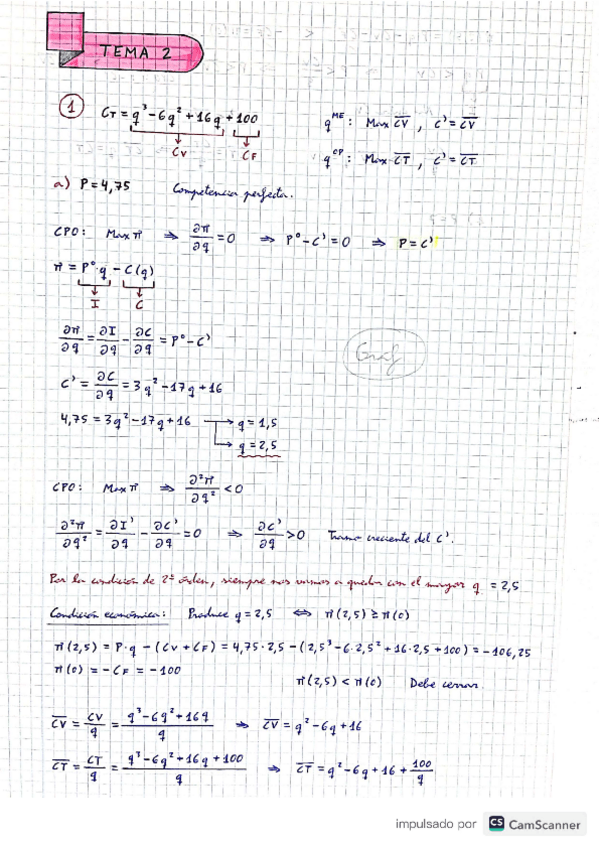 TEMA 2
① CT = q³ - 6q² + 16q + 100
CV CF
q^ME : Max C̅V̅ , C' = C̅V̅
q^CP : Max C̅T̅ , C' = C̅T̅
a) P = 4,75 Competencia perfecta.
CPO: Max π ⇒ ∂π/∂q = 0 ⇒ P° - C' = 0 ⇒ P = C'
π = P°·q - C(q)
I C
∂π/∂q = ∂I/∂q - ∂C/∂q = P° - C'
Graf
C' = ∂C/∂q = 3q² - 17q + 16
4,75 = 3q² - 17q + 16 → q = 1,5
→ q = 2,5
CPO: Max π ⇒ ∂²π/∂q² < 0
∂²π/∂q² = ∂I'/∂q - ∂C'/∂q = 0 ⇒ ∂C'/∂q > 0 Tramo creciente del C'.
Por la condición de 2º orden, siempre nos vamos a quedar con el mayor q = 2,5
Condición económica: Produce q = 2,5 ⇔ π(2,5) ≥ π(0)
π(2,5) = P·q - (CV + CF) = 4,75·2,5 - (2,5³ - 6·2,5² + 16·2,5 + 100) = -106,25
π(0) = -CF = -100
π(2,5) < π(0) Debe cerrar.
C̅V̅ = CV/q = (q³ - 6q² + 16q)/q ⇒ C̅V̅ = q² - 6q + 16
C̅T̅ = CT/q = (q³ - 6q² + 16q + 100)/q ⇒ C̅T̅ = q² - 6q + 16 + 100/q
impulsado por CS CamScanner